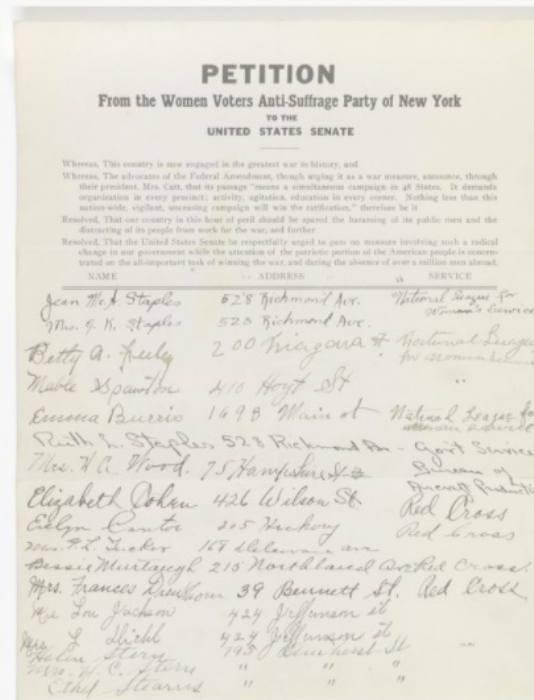 PETITION
From the Women Voters Anti-Suffrage Party of New York
TO THE
UNITED STATES SENATE
Whereas, This country is now engaged in the greatest war in history, and
Whereas, The advocates of the Federal Amendment, though urging it as a war measure, announce, through
their president, Mrs. Catt, that its passage "means a simultaneous campaign in 48 States. It demands
organization in every precinct; activity, agitation, education in every corner. Nothing less than this
nation-wide, vigilant, unceasing campaign will win the ratification," therefore be it
Resolved, That our country in this hour of peril should be spared the harassing of its public men and the
distracting of its people from work for the war, and further
Resolved, That the United States Senate be respectfully urged to pass no measure involving such a radical
change in our government while the attention of the patriotic portion of the American people is concen-
trated on the all-important task of winning the war, and during the absence of over a million men abroad.
NAME ADDRESS SERVICE
Jean Staples 528 Richmond Ave. National League for
Woman's Service
Mrs. Staples 528 Richmond Ave.
Betty A. 200 Niagara St National League
for
Mable 410 Hoyt St "
Emma Burris 1698 Main st National League for
Ruth L. Staples 528 Richmond Av - Gov't Service
Mrs. H C. Wood. 75 Hampshire St Bureau of
Aircraft
Elizabeth Cohan 426 Wilson St. Red Cross
Evelyn Cantor 205 Hickory Red Cross
Mrs. F. L. Tucker 169 Delaware ave
Bessie Murtaugh 215 Red Cross.
Mrs. Frances 39 Bennett St. Red Cross
Lou Jackson 424 Jefferson st
Mrs L Diehl 424 Jefferson st
Helen Stern 195 St
Mrs. H. C. Stern " " "
Ethel Stearns " " "